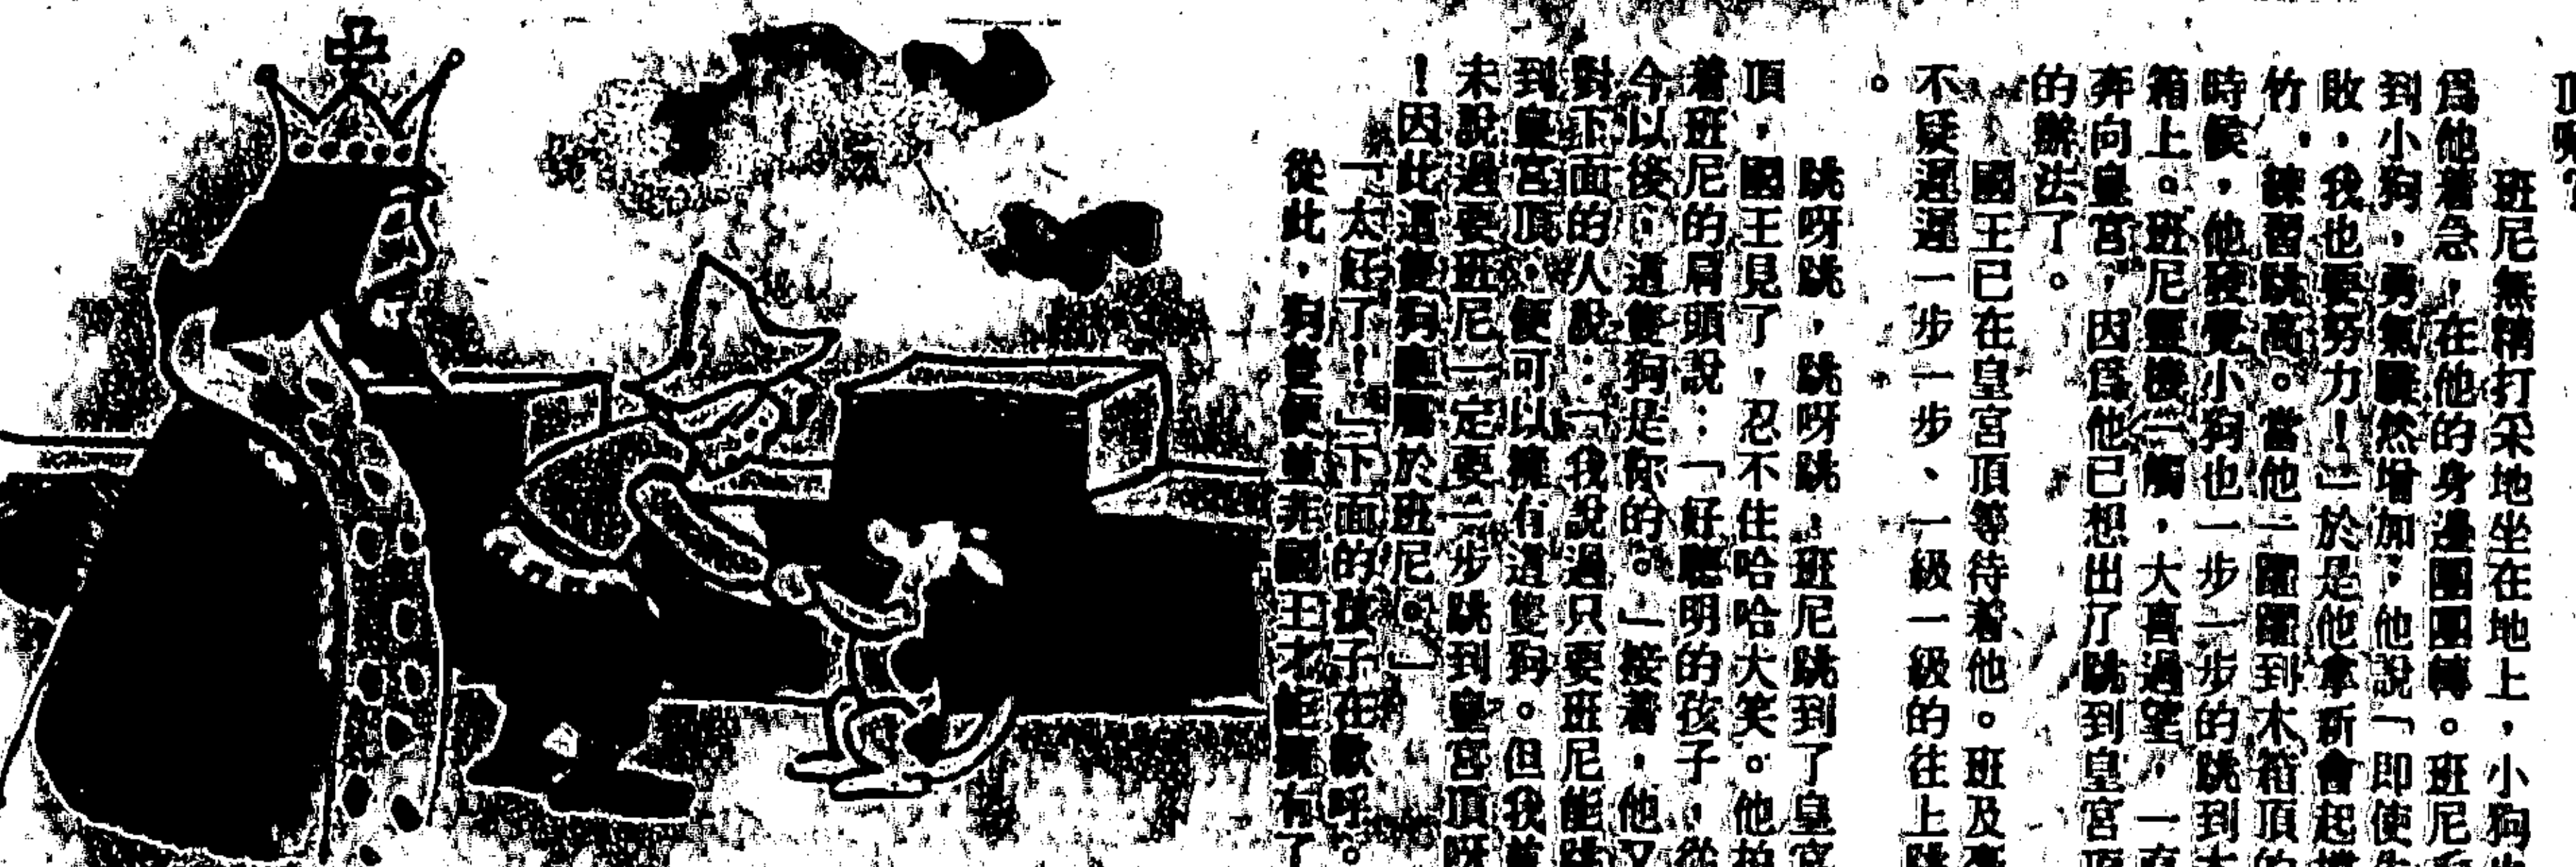 班尼無精打采地坐在地上，小狗
爲他着急，在他的身邊團團轉。班尼
到小狗，勇氣驟然增加，他說「即使
敗，我也要努力！」於是他拿新會起
竹，練習跳高。當他一躍躍到木箱頂的
時候，他發覺小狗也一步一步的跳到
箱上。班尼靈機一觸，大喜過望，一直
奔向皇宮，因爲他已想出了跳到皇宮
的辦法了。
國王已在皇宮頂等待着他。班及
不疑遲遲一步一步、一級一級的往上跳
。
跳呀跳，跳呀跳，班尼跳到了皇宮
頂，國王見了，忍不住哈哈大笑。他拍
着班尼的肩頭說：「好聰明的孩子，從
今以後，這隻狗是你的。」接着，他又
對下面的人說：「我說過只要班尼能跳
到皇宮頂，便可以擁有這隻狗。但我並
未說過要班尼一定要一步跳到皇宮頂呀
！因此這隻狗應屬於班尼。」
「太好了！」下面的孩子在歡呼。
從此，狗並非國王才能擁有了